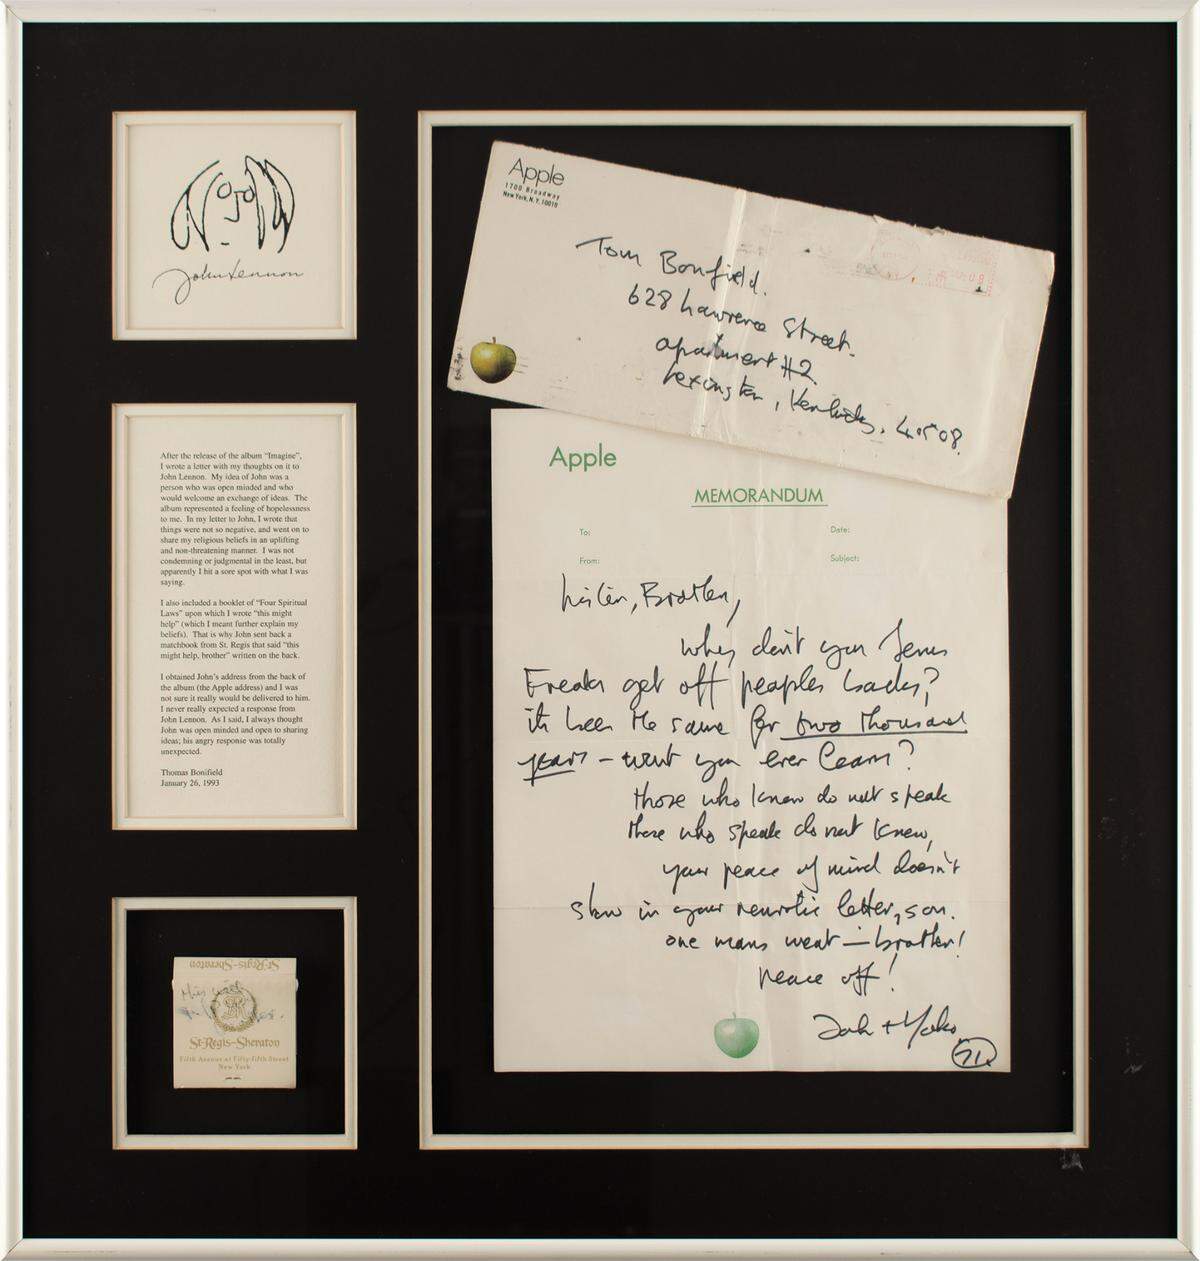 John Lennon
After the release of the album "Imagine",
I wrote a letter with my thoughts on it to
John Lennon. My idea of John was a
person who was open minded and who
would welcome an exchange of ideas. The
album represented a feeling of hopelessness
to me. In my letter to John, I wrote that
things were not so negative, and went on to
share my religious beliefs in an uplifting
and non-threatening manner. I was not
condemning or judgmental in the least, but
apparently I hit a sore spot with what I was
saying.
I also included a booklet of "Four Spiritual
Laws" upon which I wrote "this might
help" (which I meant further explain my
beliefs). That is why John sent back a
matchbook from St. Regis that said "this
might help, brother" written on the back.
I obtained John's address from the back of
the album (the Apple address) and I was
not sure it really would be delivered to him.
I never really expected a response from
John Lennon. As I said, I always thought
John was open minded and open to sharing
ideas; his angry response was totally
unexpected.
Thomas Bonifield
January 26, 1993
St-Regis-Sheraton
St-Regis-Sheraton
Fifth Avenue at Fifty-fifth Street
New York
Apple
1700 Broadway
New York, N.Y. 10019
Tom Bonfield.
628 Lawrence Street.
apartment #2
Lexington, Kentucky, 40508.
Apple
MEMORANDUM
To:
Date:
From:
Subject:
Listen, Brother,
why don't you Jesus
Freaks get off peoples backs?
its been the same for two thousand
years - wont you ever learn?
Those who know do not speak
Those who speak do not know,
your peace of mind doesn't
show in your neurotic letter, son.
one mans meat — brother!
peace off!
John + Yoko
71